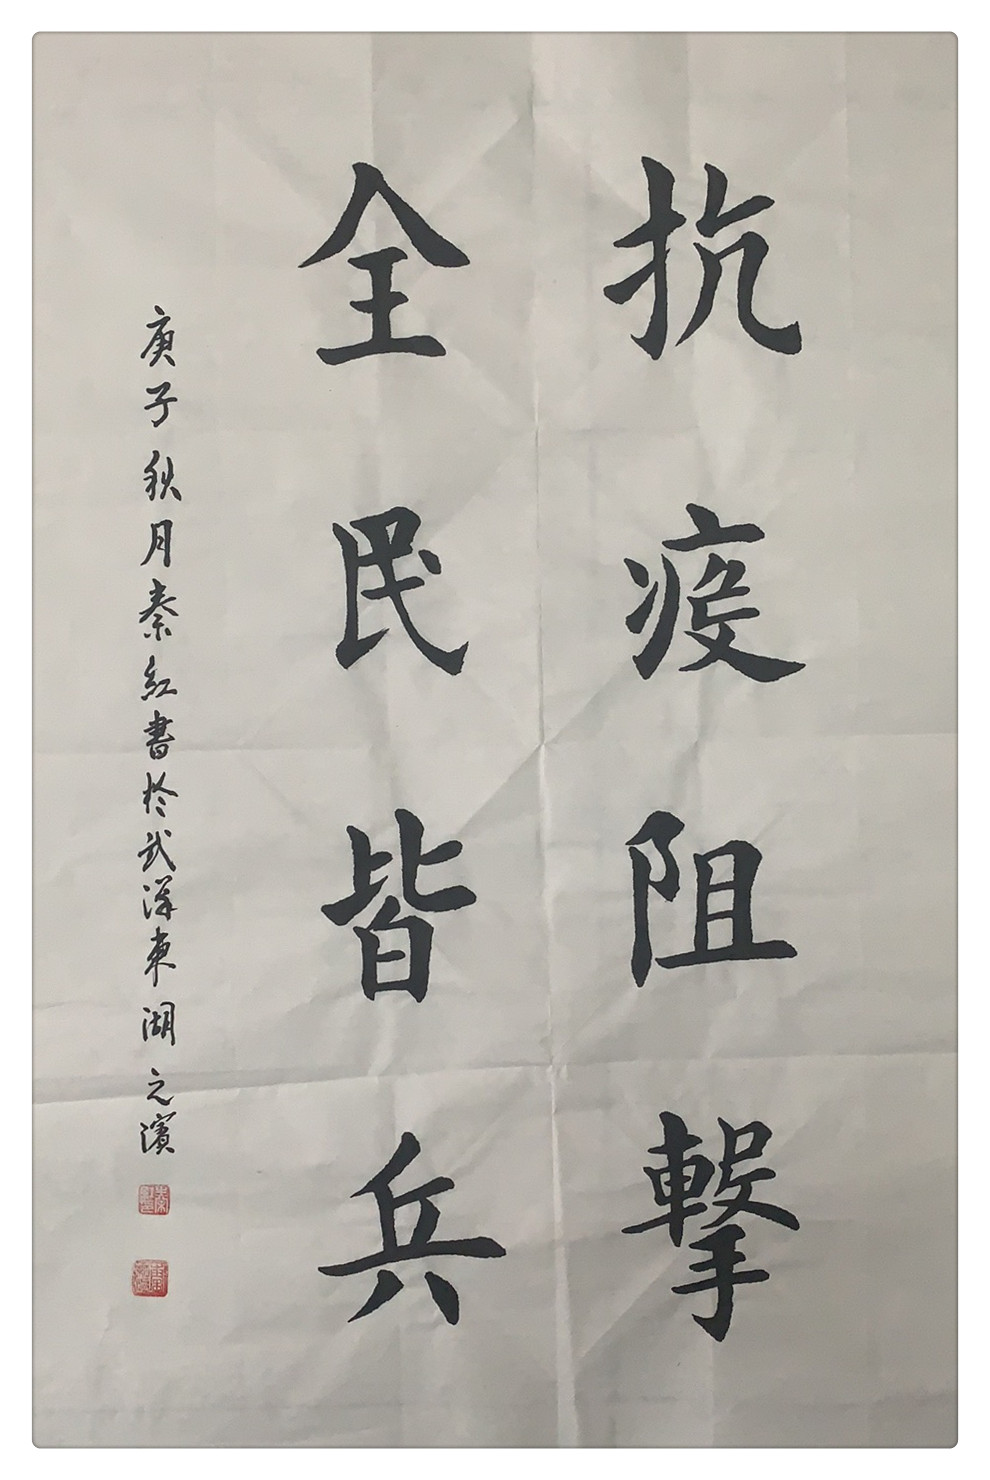 抗疫阻擊
全民皆兵
庚子秋月秦紅書於武漢東湖之濱